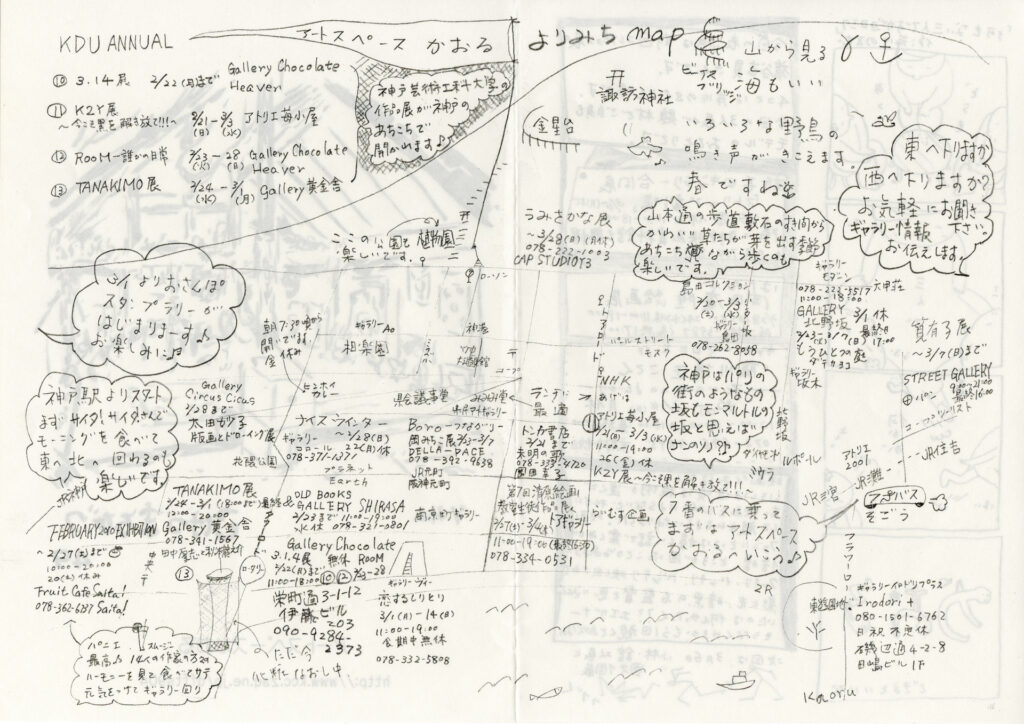 KDU ANNUAL
アートスペース かおる
よりみち map
⑩ 3.14展 2/22(月)まで Gallery Chocolate
Heaven
⑪ K2Y展
～今こそ裏を解き放て!!!～
2/21-3/3
(日) (水)
アトリエ苺小屋
⑫ ROOM-誰かの日常 2/23-28
(火) (日)
Gallery Chocolate
Heaven
⑬ TANAKIMO展 2/24-3/1
(水) (月)
Gallery 黄金舎
神戸芸術工科大学の
作品展が神戸の
あちこちで
開かれます♪
山から見る
海もいい
ビーナス
ブリッジ
諏訪神社
金星台
いろいろな野鳥の
鳴き声がきこえます。
春ですね
東へ下りますか
西へ下りますか?
お気軽にお聞き
下さい。
ギャラリー情報
お伝えします。
ここの公園も
楽しいです。
植物園
うみさかな展
～3/28(日)
078-222-1003
CAP STUDIO Y3
山本通の歩道敷石のすき間から
かわいい草たちが芽を出す季節
あちこち ながら歩くのも
楽しいです。
3/1よりおさんぽ
スタンプラリーが
はじまりまーす♪
お楽しみに♪
ローソン
朝7:30頃から
開いてます
金休み
ギャラリーAo
相楽園
神港
コープ
トアロード
島田コレクション
2/20-3/3
(土) (水)
ギャラリー
島田
078-262-8058
パールストリート
モスク
ギャラリー
モダニン
078-222-5517 大伸荘
11:00-18:00
GALLERY
北野坂
3/1休
2/23-3/7(日)
最終日
17:00
もうひとつの
庭
筧有子展
～3/7(日)まで
STREET GALLERY
9:00-21:00
最終16:00
ギャラリー
坂木
神戸駅よりスタート
まずサイタ!サイタさんで
モーニングを食べて
東へ北へ回るのも
楽しいです。
JR神戸
Gallery
Circus Circus
2/28まで
太田めり子
版画とドローイング展
花隈公園
県会議事堂
ナイスウィンター
～2/28(日)
ギャラリー
22(月)休
078-371-1237
プラネット
Earth
Boro-つながり-
岡みこ展2/3-3/7
DELLA-PACE
078-392-9638
JR元町
阪神元町
南京町ギャラリー
NHK
ランチに
最適
トンカ書店
2/21まで
未明の歌
078-333-4720
アトリエ苺小屋
2/21(日)-3/3(水)
11:00-19:00
26(金)休
K2Y展～今こそ裏を解き放て!!!～
神戸はパリの
街のようなもの
坂もモンマルトルの
坂と思えば
ナンのソノ?!
北野坂
ルポール
アトリエ
2001
JR三宮
JR灘
JR住吉
TANAKIMO展
2/24-3/1(18:00まで)
12:00-20:00
Gallery 黄金舎
078-341-1567
OLD BOOKS
&GALLERY SHIRASA
2/23まで
11:00-19:00
水休 078-321-0801
FEBRUARY 2010 EXHIBITION
～2/27(土)まで
10:00-20:00
20(土)休み
Fruit Cafe Saita!
078-362-6187 Saita!
第7回清原絵画
教室生徒作品展
2/27(土)-3/4(木)
トアギャラリー
11:00-19:00(最終16:30)
078-334-0531
らいむす企画
7番のバスに乗って
まずはアートスペース
かおるへいこう♪
7番バス
そごう
フラワーロード
Gallery Chocolate
3.1.4展 無休 ROOM
2/22(月)まで
11:00-18:00
⑩ ⑫ 2/23-28
栄町通3-1-12
伊藤ビル
203
090-9284-
2373
ただ今
化粧なおし中
⑬
ギャラリーヴィー
恋するしりとり
3/1(月)-14(日)
11:00-19:00
会期中無休
078-332-5808
パニーニ
スムージー
最高♪ 14人の作家の方の
ハーモニーを見て食べてサテ
元気をつけてギャラリー回り
2R
東遊園地
ギャラリーイロドリプラス
Irodori+
080-1501-6762
日祝 不定休
磯辺通4-2-8
田嶋ビル1F
Kaoru